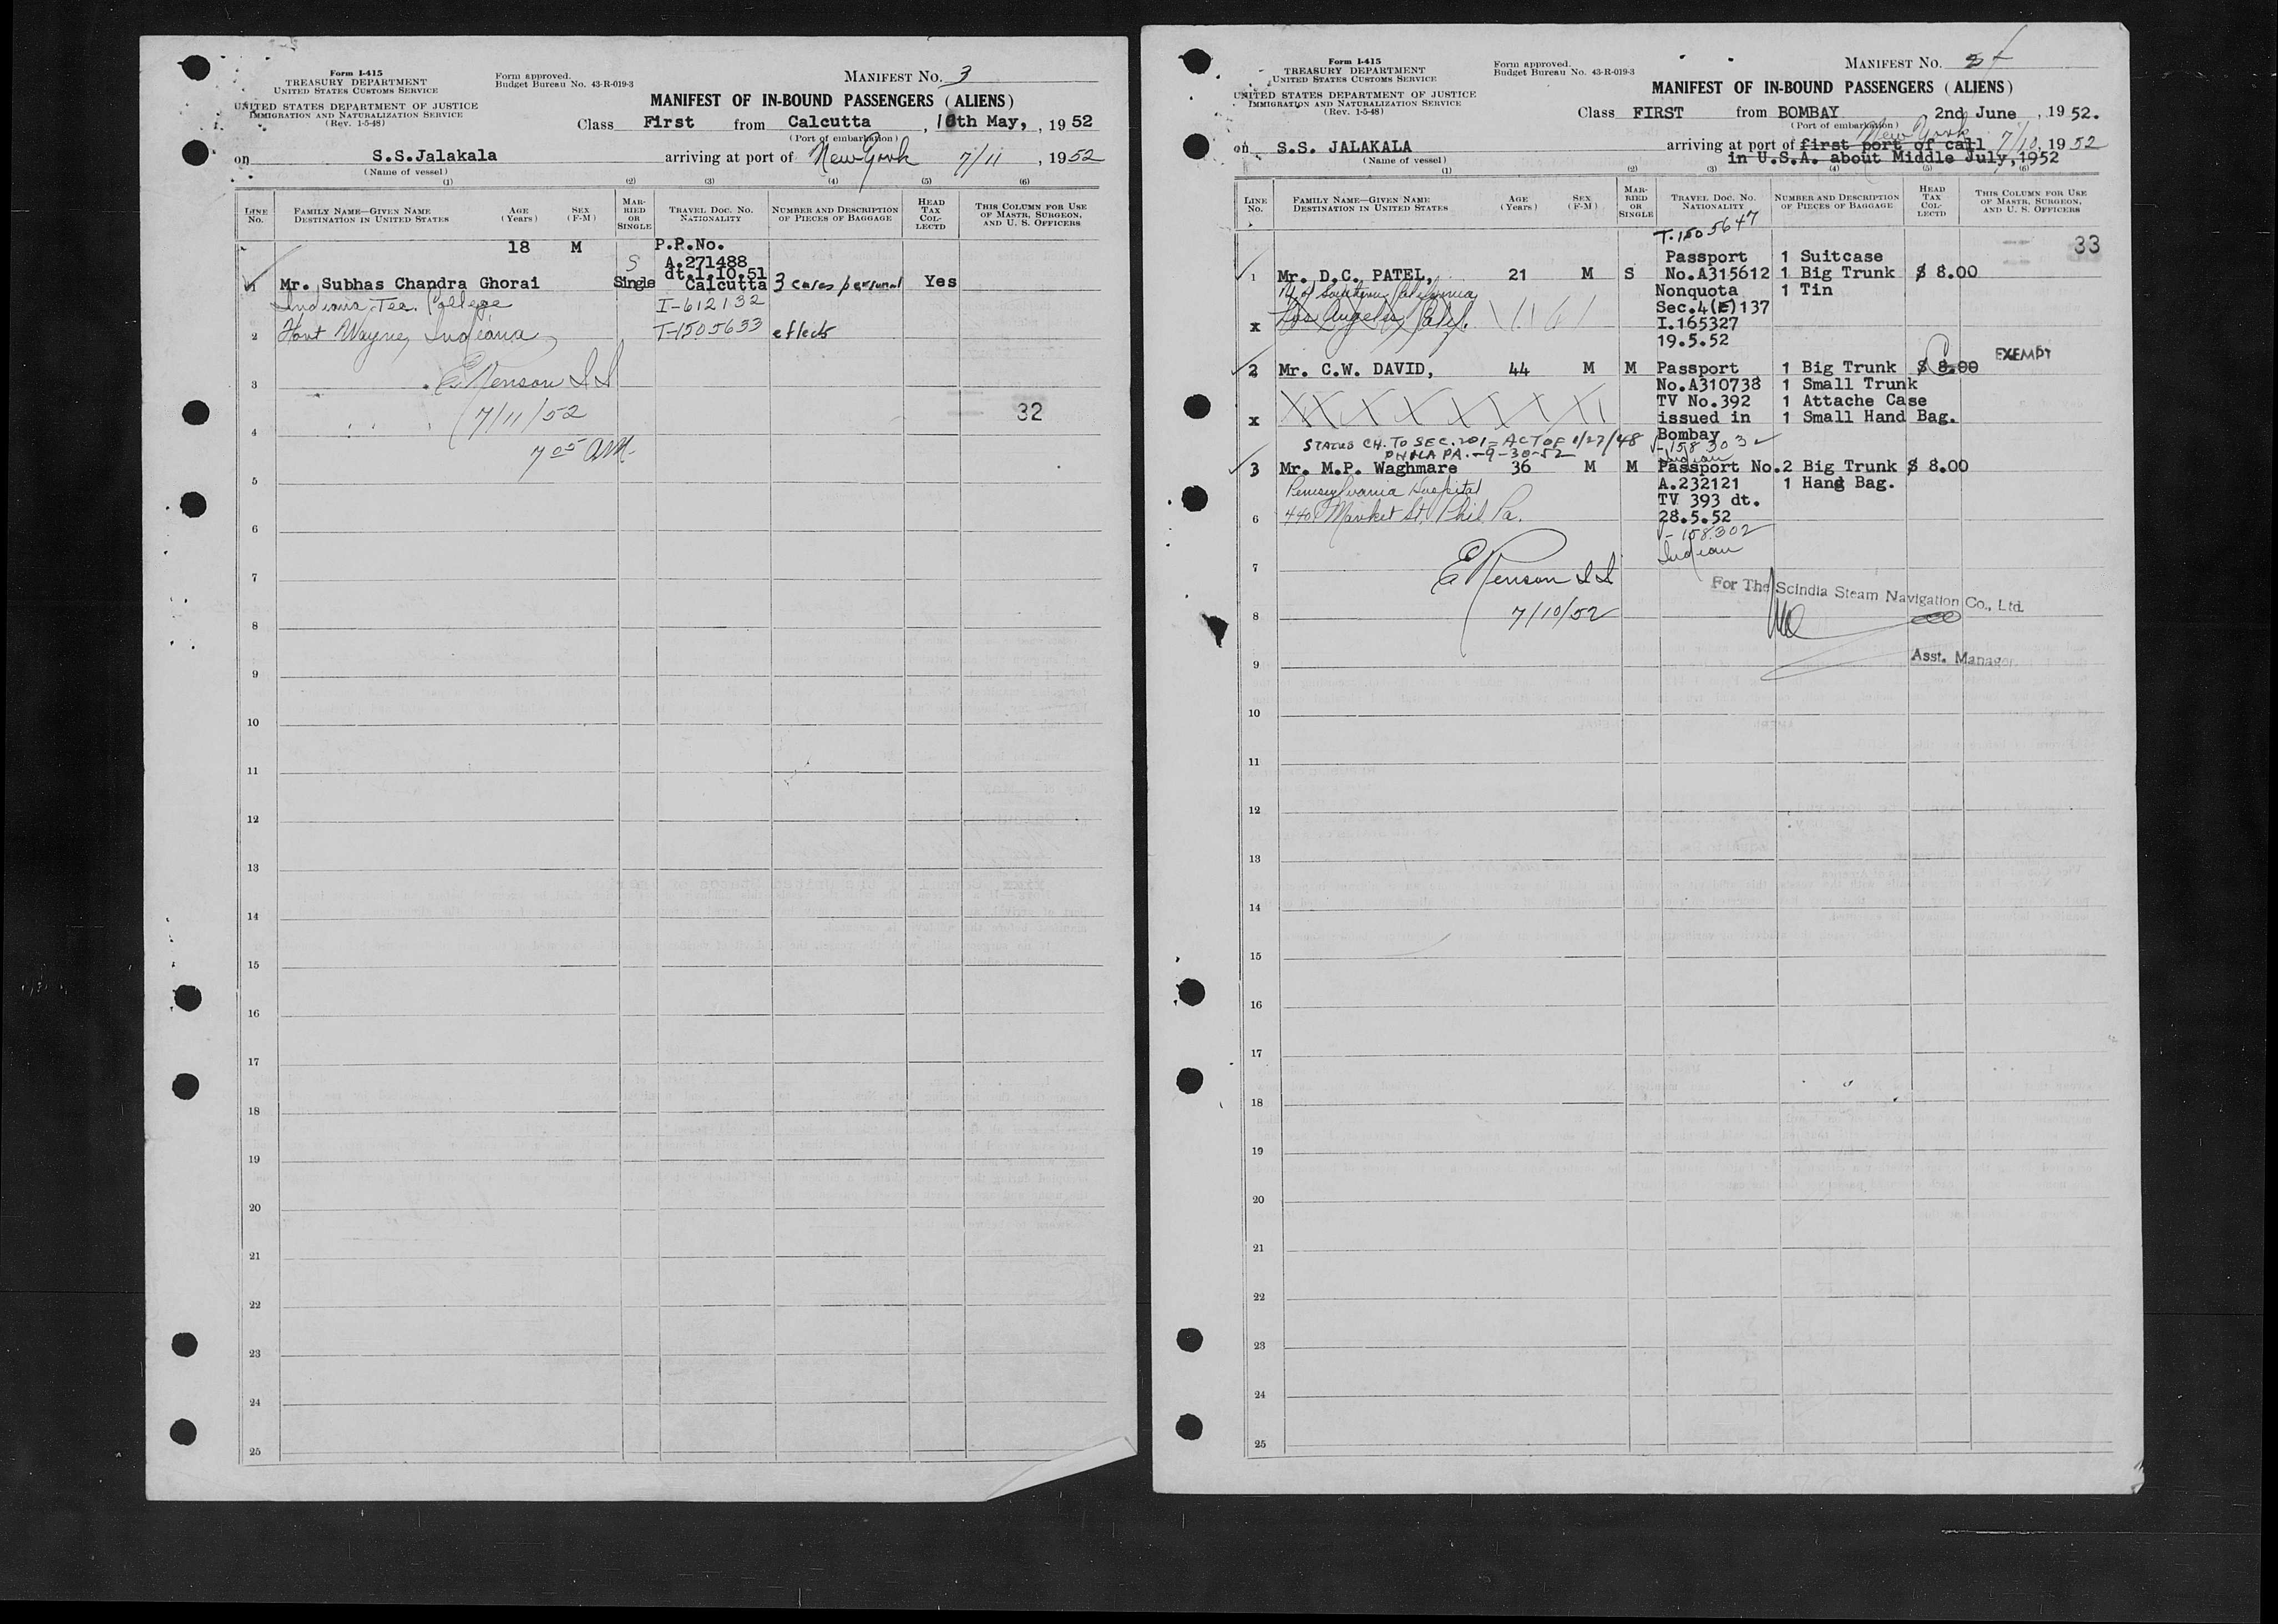 Form I-415
TREASURY DEPARTMENT
UNITED STATES CUSTOMS SERVICE
UNITED STATES DEPARTMENT OF JUSTICE
IMMIGRATION AND NATURALIZATION SERVICE
(Rev. 1-5-48)
Form approved.
Budget Bureau No. 43-R-019-3
MANIFEST NO. 3
MANIFEST OF IN-BOUND PASSENGERS (ALIENS)
Class First from Calcutta, 10th May, , 1952
(Port of embarkation)
on S.S.Jalakala arriving at port of New York 7/11, 1952
(Name of vessel)
(1) (2) (3) (4) (5) (6)
LINE NO.
FAMILY NAME—GIVEN NAME
DESTINATION IN UNITED STATES
AGE (Years)
SEX (F-M)
MARRIED OR SINGLE
TRAVEL DOC. NO.
NATIONALITY
NUMBER AND DESCRIPTION
OF PIECES OF BAGGAGE
HEAD TAX COLLECTD
THIS COLUMN FOR USE
OF MASTR, SURGEON,
AND U. S. OFFICERS
18 M P.P.No.
S A.271488
dt.1.10.51
1 Mr. Subhas Chandra Ghorai Single Calcutta 3 cases personal Yes
Indiana Tec. College I-612132
2 Fort Wayne, Indiana T-1505633 effects
3 E Renson I I
4 7/11/52 32
7 05 AM.
5
6
7
8
9
10
11
12
13
14
15
16
17
18
19
20
21
22
23
24
25
Form I-415
TREASURY DEPARTMENT
UNITED STATES CUSTOMS SERVICE
UNITED STATES DEPARTMENT OF JUSTICE
IMMIGRATION AND NATURALIZATION SERVICE
(Rev. 1-5-48)
Form approved.
Budget Bureau No. 43-R-019-3
MANIFEST NO.
MANIFEST OF IN-BOUND PASSENGERS (ALIENS)
Class FIRST from BOMBAY 2nd June , 1952.
(Port of embarkation)
New York
on S.S. JALAKALA arriving at port of first port of call 7/10, 1952
(Name of vessel) in U.S.A. about Middle July,1952
(1) (2) (3) (4) (5) (6)
LINE NO.
FAMILY NAME—GIVEN NAME
DESTINATION IN UNITED STATES
AGE (Years)
SEX (F-M)
MARRIED OR SINGLE
TRAVEL DOC. NO.
NATIONALITY
NUMBER AND DESCRIPTION
OF PIECES OF BAGGAGE
HEAD TAX COLLECTD
THIS COLUMN FOR USE
OF MASTR, SURGEON,
AND U. S. OFFICERS
T.1505647
33
Passport 1 Suitcase
1 Mr. D.C. PATEL, 21 M S No.A315612 1 Big Trunk $ 8.00
U. of Southern California Nonquota 1 Tin
Los Angeles, Calif. Sec.4(E)137
x I.165327
19.5.52
EXEMPT
2 Mr. C.W. DAVID, 44 M M Passport 1 Big Trunk $ 8.00
No.A310738 1 Small Trunk
TV No.392 1 Attache Case
x issued in 1 Small Hand Bag.
Bombay
STATUS CH. TO SEC. 201 = ACT OF 1/27/48 V-158303
PHILA PA. - 9-30-52 Indian
3 Mr. M.P. Waghmare 36 M M Passport No. 2 Big Trunk $ 8.00
Pennsylvania Hospital A.232121 1 Hand Bag.
TV 393 dt.
6 4401 Market St. Phil. Pa. 28.5.52
V-158302
Indian
7 E Renson I I
For The Scindia Steam Navigation Co., Ltd.
8 7/10/52
9 Asst. Manager.
10
11
12
13
14
15
16
17
18
19
20
21
22
23
24
25